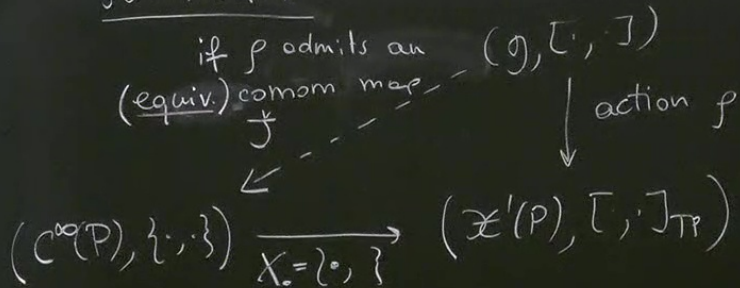 if ρ admits an
(equiv.) comom map
J̌
(g, [·, ·])
action ρ
(C^∞(P), {·,·})
X. = {·, }
(𝔛'(P), [·,·]_TP)